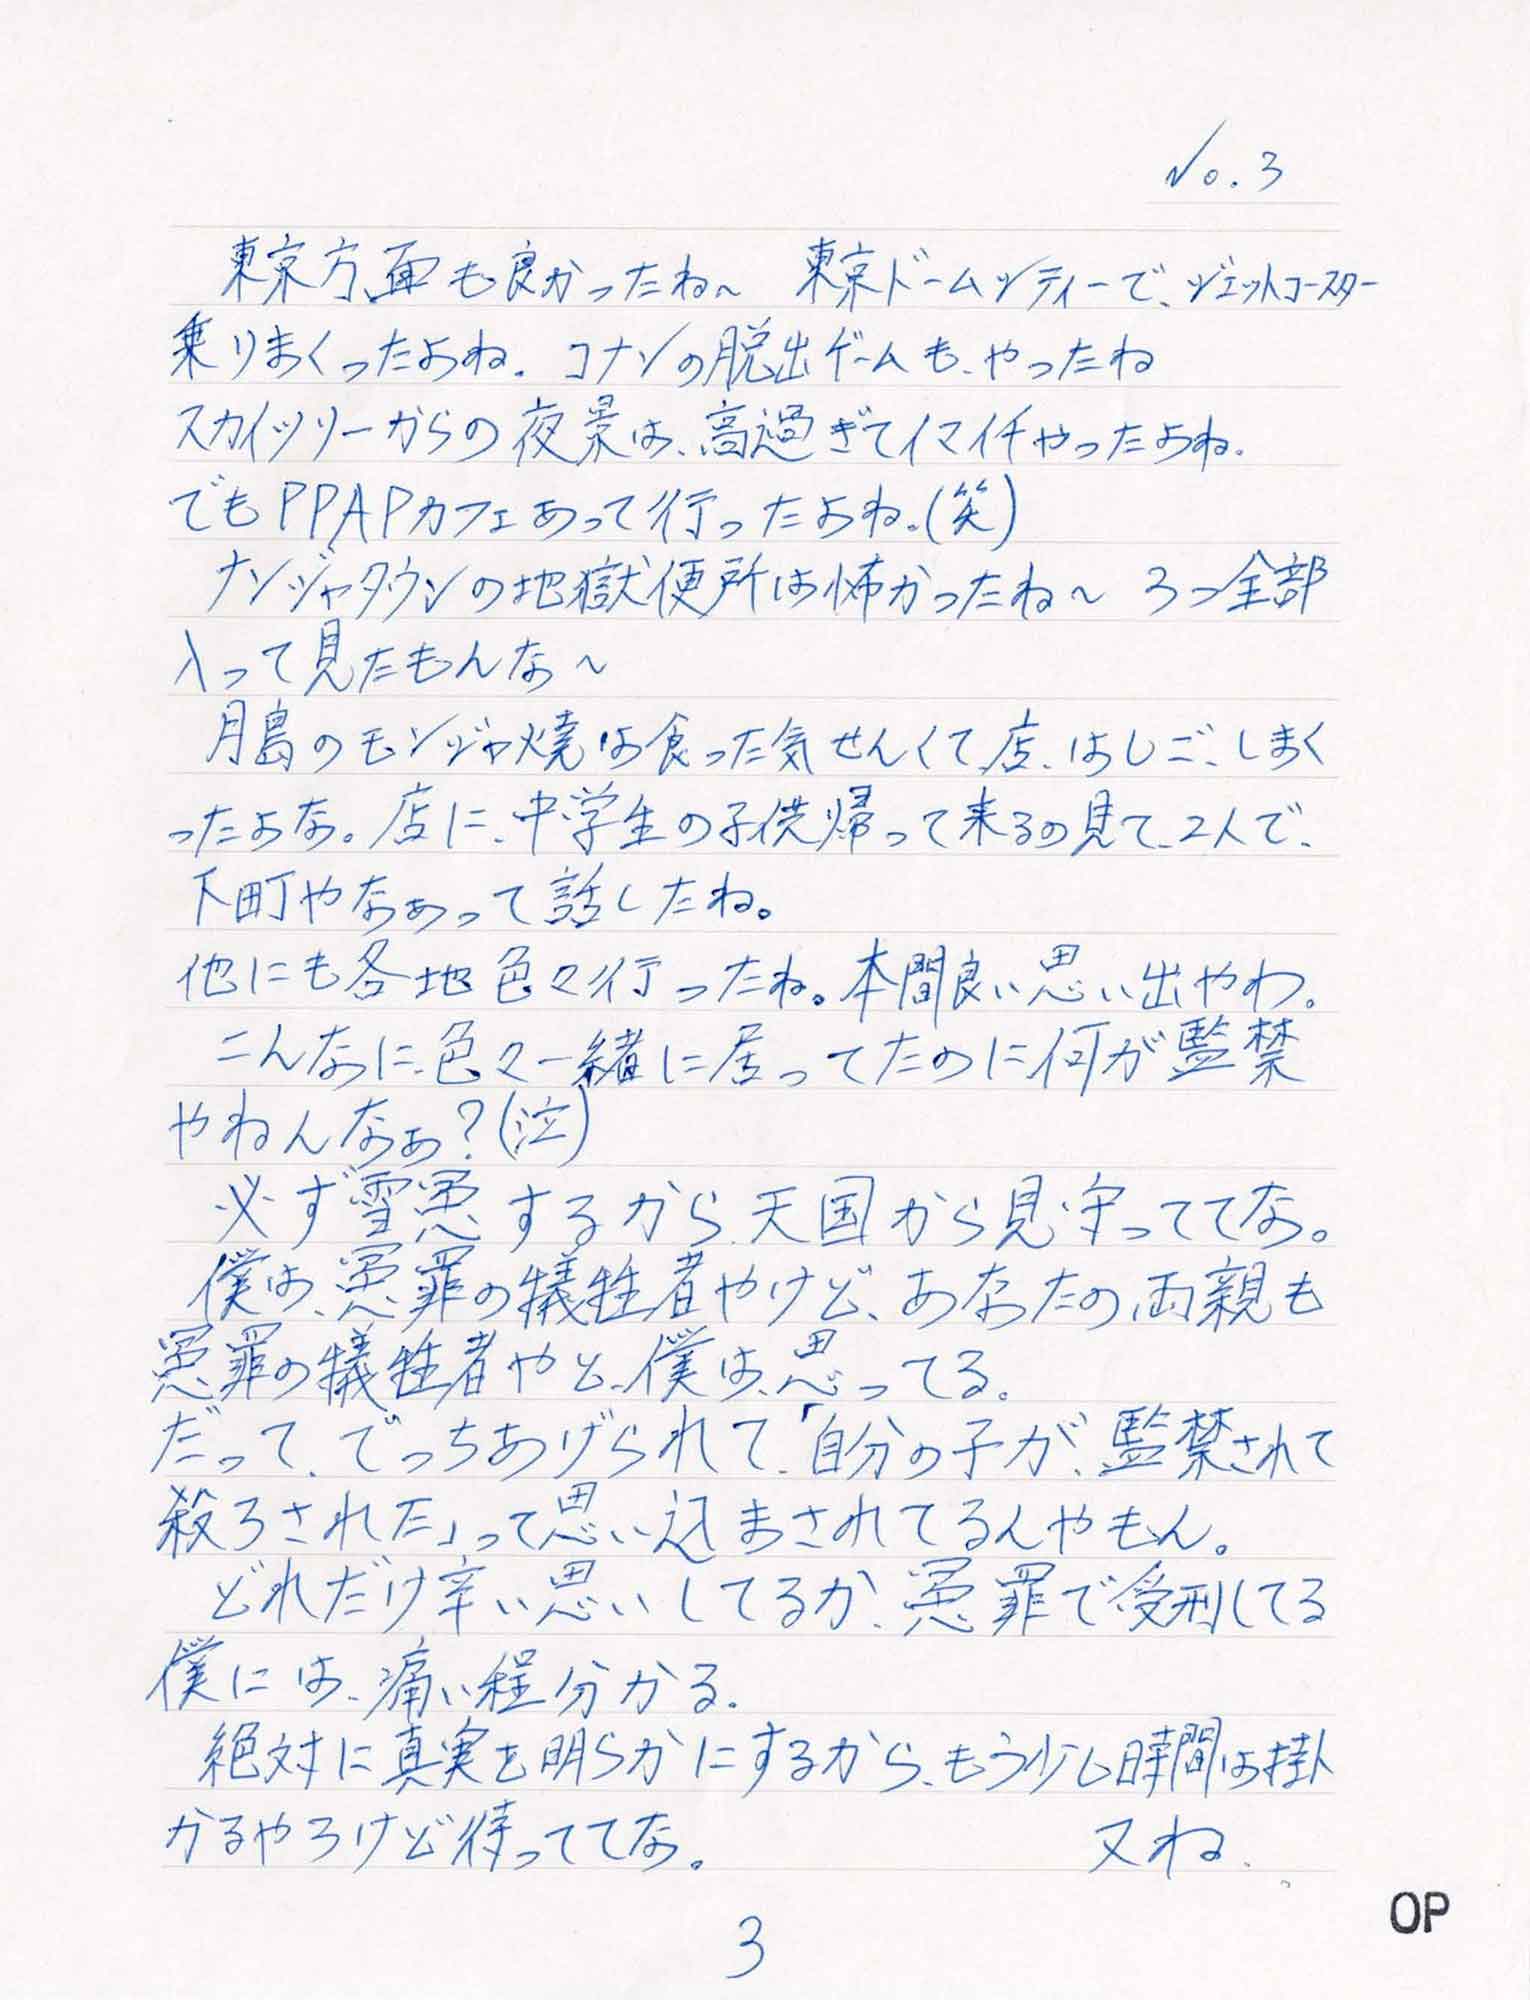 No.3
東京方面も良かったね〜 東京ドームシティーで、ジェットコースター
乗りまくったよね。コナンの脱出ゲームも、やったね
スカイツリーからの夜景は、高過ぎてイマイチやったよね。
でもPPAPカフェあって行ったよね。(笑)
ナンジャタウンの地獄便所は怖かったね〜 3つ全部
入って見たもんな〜
月島のモンジャ焼は食った気せんくて、店、はしご、しまく
ったよな。店に、中学生の子供帰って来るの見て、2人で、
下町やなぁって話したね。
他にも各地色々行ったね。本間良い思い出やわ。
こんなに、色々一緒に居ってたのに何が監禁
やねんなぁ?(泣)
必ず雪冤するから、天国から見守っててな。
僕は、冤罪の犠牲者やけど、あなたの両親も
冤罪の犠牲者やと、僕は、思ってる。
だって、でっちあげられて、「自分の子が、監禁されて
殺ろされた」って思い込まされてるんやもん。
どれだけ辛い思いしてるか、冤罪で受刑してる
僕には、痛い程分かる。
絶対に真実を明らかにするから、もう少し時間は掛
かるやろけど待っててな。 又ね、
3
OP